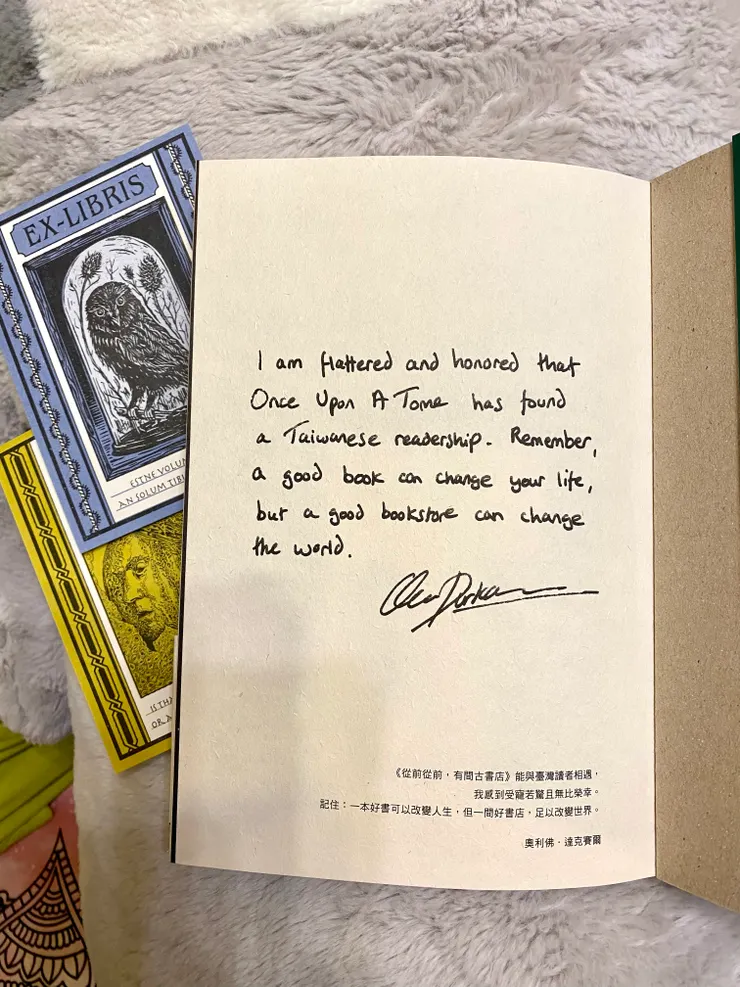 EX-LIBRIS
ESTNE VOLU
AN SOLUM TIBI
IS THA
OR A
I am flattered and honored that
Once Upon A Tome has found
a Taiwanese readership. Remember,
a good book can change your life,
but a good bookstore can change
the world.
《從前從前，有間古書店》能與臺灣讀者相遇，
我感到受寵若驚且無比榮幸。
記住：一本好書可以改變人生，但一間好書店，足以改變世界。
奧利佛·達克賽爾